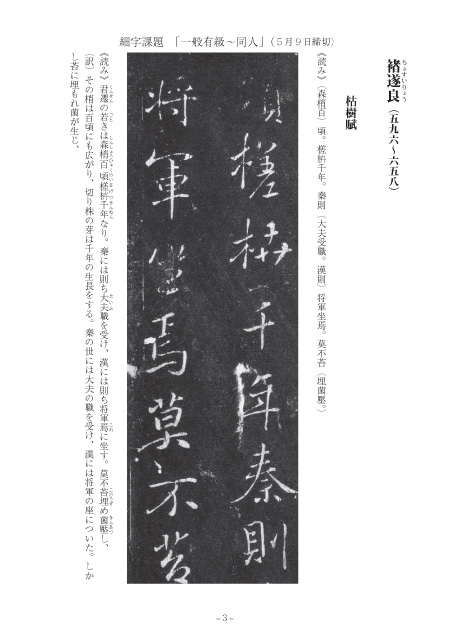 細字課題 「一般有級～同人」(５月９日締切)
褚遂良（五九六～六五八）
ちょすいりょう
枯樹賦
《読み》（森梢百）頃。槎枿千年。秦則（大夫受職。漢則）将軍坐焉。莫不苔（埋菌壓。）
頃槎枿千年秦則
将軍坐焉莫不苔
《読み》君遷の若きは森梢百頃槎枿千年なり。秦には則ち大夫職を受け、漢には則ち将軍焉に坐す。莫不苔埋め菌壓し、
（訳）その梢は百頃にも広がり、切り株の芽は千年の生長をする。秦の世には大夫の職を受け、漢には将軍の座についた。しか
し苔に埋もれ菌が生じ、
－３－